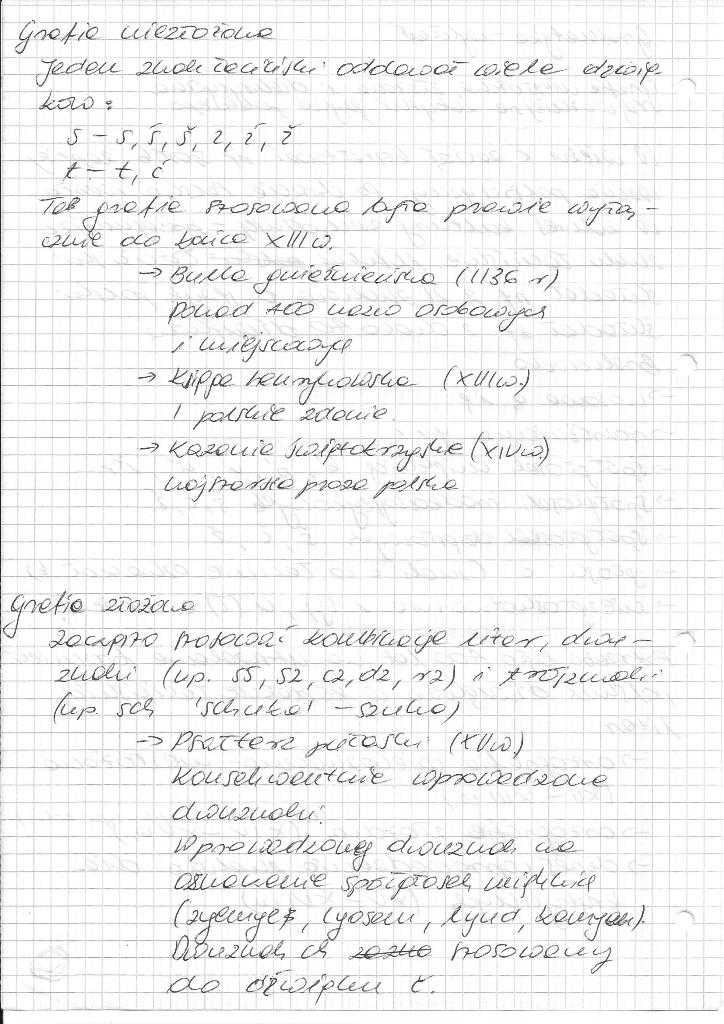 Grafia niezłożona
Jeden znak łaciński oddawał wiele dźwię-
ków:
s – s, ś, š, z, ź, ž
t – t, ć
Tak grafia stosowana była prawie wyłą-
cznie do końca XIII w.
→ Bulla gnieźnieńska (1136 r)
ponad 400 nazw osobowych
i miejscowych
→ Księga henrykowska (XIII w.)
1 polskie zdanie.
→ Kazania świętokrzyskie (XIV w.)
najstarsza proza polska
Grafia złożona
zaczęto stosować kombinacje liter, dwu-
znaki (np. ss, sz, cz, dz, rz) i trójznaki
(np. sch 'schuka' – szuka)
→ Psałterz puławski (XV w)
Konsekwentnie wprowadzone
dwuznaki.
Wprowadzony dwuznak na
oznaczenie spółgłosek miękkich
(zyemye, lyosem, lyud, kamyen).
Dwuznak ch stosowany
do dźwięku ć.